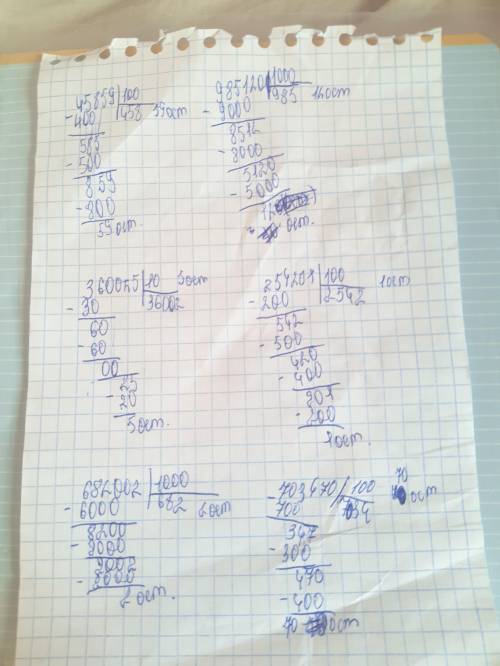 45859 | 100
- 400 | 458 59 ост
585
- 500
859
- 800
59 ост.
985120 | 1000
- 9000 | 985 120 ост
8512
- 8000
5120
- 5000
120
ост.
360025 | 10 5 ост
- 30 | 36002
60
- 60
00
25
- 20
5 ост.
254201 | 100 1 ост
- 200 | 2542
542
- 500
420
- 400
201
- 200
1 ост.
682002 | 1000
- 6000 | 682 2 ост
8200
- 8000
2002
- 2000
2 ост.
703470 | 100 70
- 700 | 34 ост
347
- 300
470
- 400
70 ост